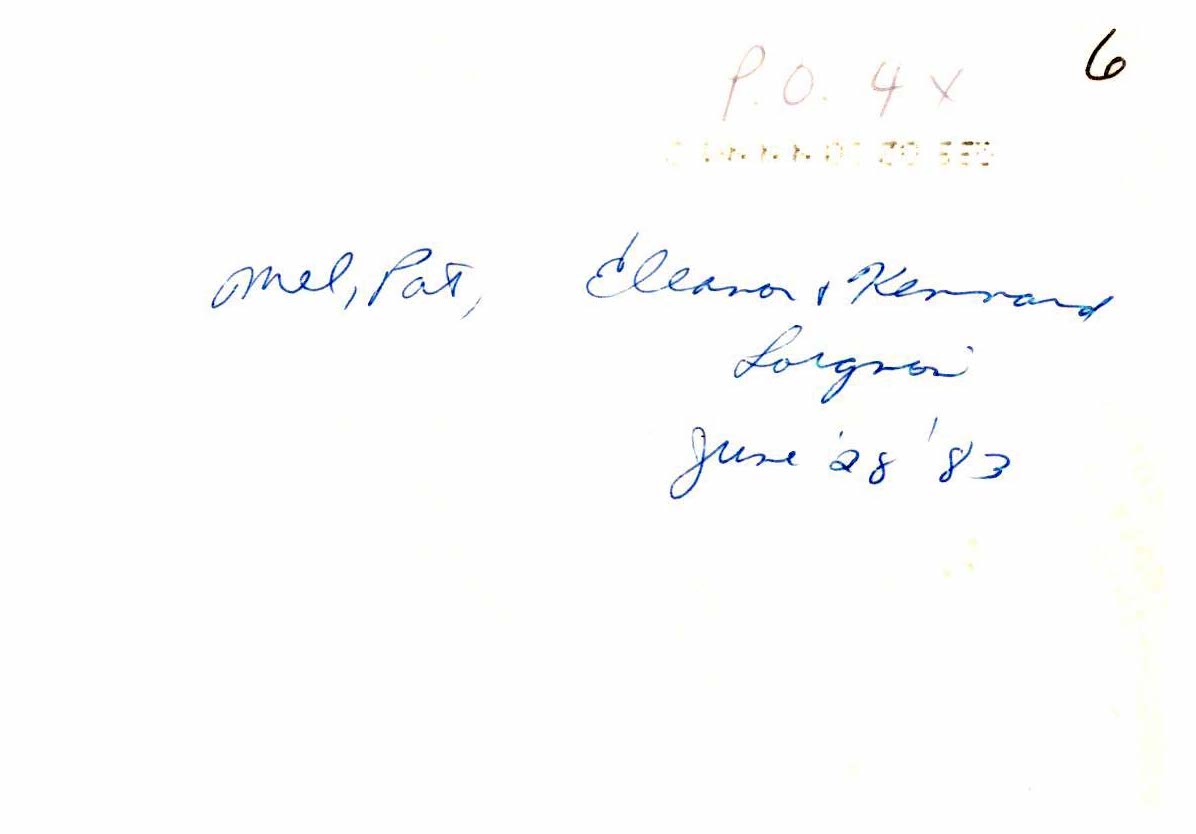 6
P.O. 4x
Mel, Pat, Eleanor & Kennard
Lorgnon
June '28 '83